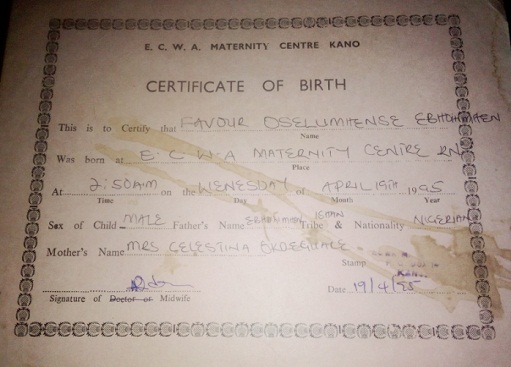 E. C. W. A. MATERNITY CENTRE KANO
CERTIFICATE OF BIRTH
This is to Certify that FAVOUR OSELUMHENSE
Name
Was born at E. C. W. A MATERNITY CENTRE
Place
At 2:50AM on the WENESDAY of APRIL 19TH 1995
Time Day Month Year
Sex of Child MALE Father's Name Tribe & Nationality ISHAN NIGERIAN
Mother's Name MRS CELESTINA
Stamp
Signature of Doctor or Midwife Date 19/4/95